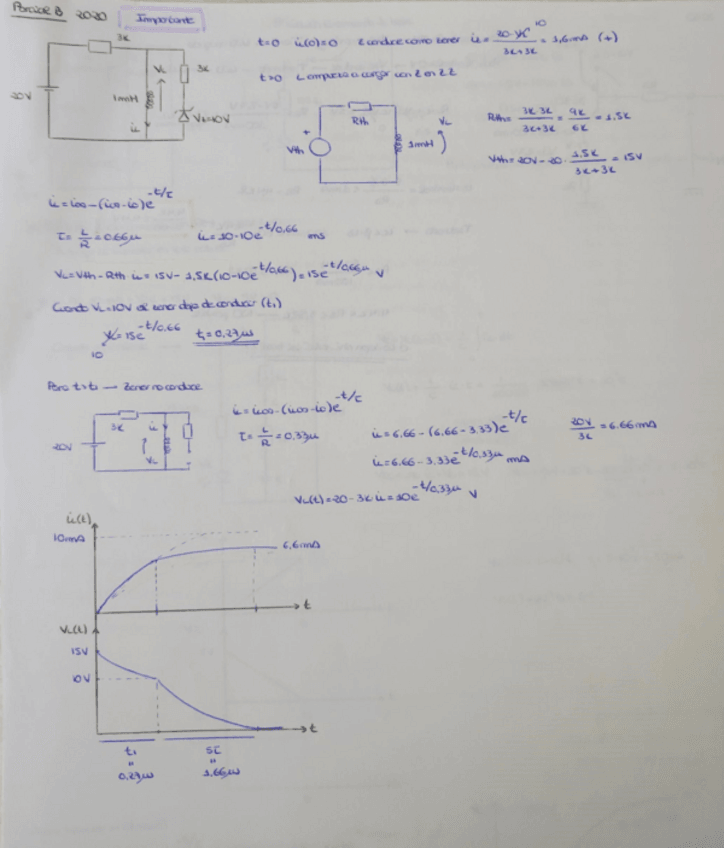 Parcial B 2020 Importante
3k
20V
VL
1mH
iL
3k
Vz=10V
t=0 iL(0)=0 z conduce como zener iz = 20-10 / 3k+3k = 1,6mA (+)
t>0 L empieza a cargar con z en ZZ
Rth
Vth
+
1mH
VL
Rth = 3k·3k / 3k+3k = 9k / 6k = 1.5k
Vth = 20V - 20· 1.5k / 3k+3k = 15V
iL = i∞ - (i∞ - i0) e^-t/τ
τ = L/R = 0.66µ iL = 10-10e^-t/0,66 ms
VL = Vth - Rth iL = 15V - 1,5k (10-10e^-t/0,66) = 15e^-t/0,66µ V
Cuando VL=10V el zener deja de conducir (t1)
10 = 15e^-t/0.66 t1 = 0,27µs
Para t>t1 → Zener no conduce
20V
3k
iL
VL
iL = i∞ - (i∞ - i0) e^-t/τ
τ = L/R = 0.33µ
iL = 6.66 - (6.66 - 3.33) e^-t/τ
20V / 3k = 6.66mA
iL = 6.66 - 3.33e^-t/0.33µ mA
VL(t) = 20 - 3k iL = 10e^-t/0,33µ V
iL(t)
10mA
6,6mA
t
VL(t)
15V
10V
t
t1 5τ
" "
0,27µs 1,66µs